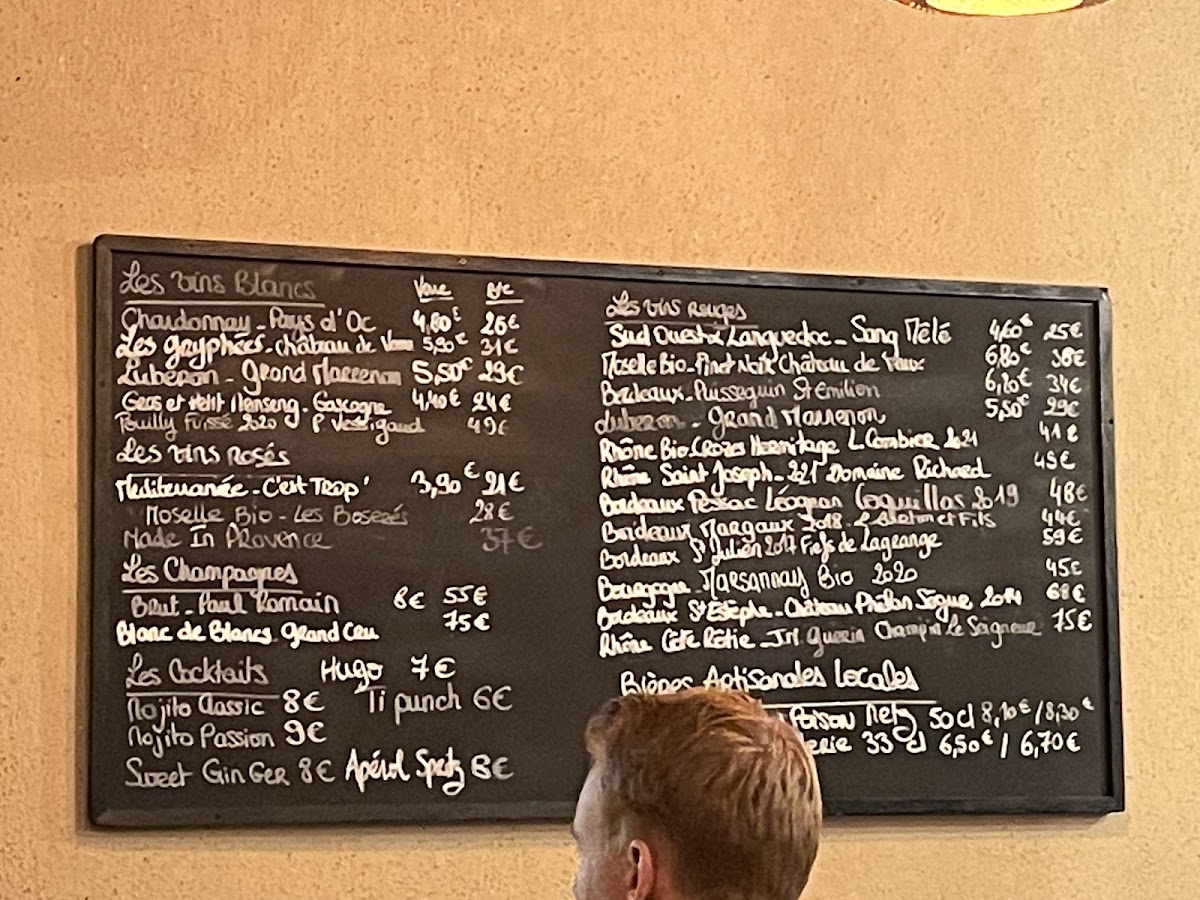 Les Vins Blancs Verre Btle
Chardonnay - Pays d'Oc 4,60€ 26€
Les gryphées - château de Vaux 5,90€ 31€
Luberon - Grand Marrenon 5,50€ 29€
Gros et Petit Manseng - Gascogne 4,40€ 24€
Pouilly Fuissé 2020 P Vessigaud 49€
Les Vins Rosés
Mediterranée - C'est TROP' 3,90€ 21€
Moselle Bio - Les Boserés 28€
Made In Provence 37€
Les Champagnes
Brut - Paul Romain 8€ 55€
Blanc de Blancs Grand Cru 75€
Les Cocktails Hugo 7€
Mojito Classic 8€ Ti punch 6€
Mojito Passion 9€
Sweet GinGer 8€ Apérol Spritz 8€
Les Vins Rouges
Sud Ouest Languedoc - Sang Mêlé 4,60€ 25€
Moselle Bio - Pinot Noir Château de Vaux 6,80€ 38€
Bordeaux - Puisseguin St Emilion 6,20€ 34€
Luberon - Grand Marrenon 5,50€ 29€
Rhône Bio Crozes Hermitage L. Combier 2021 41€
Rhône Saint Joseph - 2021 Domaine Richard 45€
Bordeaux Pessac Léognan Coquillas 2019 48€
Bordeaux Margaux 2018 - et Fils 44€
Bordeaux St Julien 2017 Fiefs de Lagrange 59€
Bourgogne - Marsannay Bio 2020 45€
Bordeaux St Estèphe - Château Phélan Ségur 2014 68€
Rhône Côte Rôtie - JM Guerin Champin Le Seigneur 75€
Bières Artisanales Locales
Poison Metz 50cl 8,10€ / 8,30€
erie 33 cl 6,50€ / 6,70€